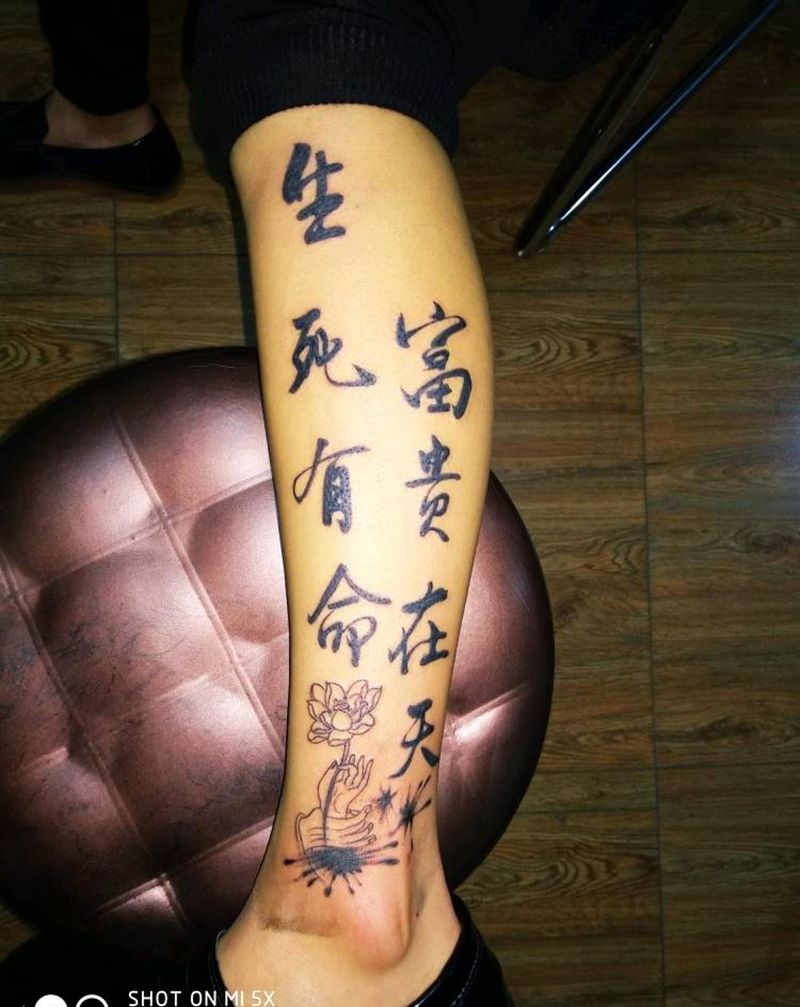 生死有命
富贵在天
SHOT ON MI 5X